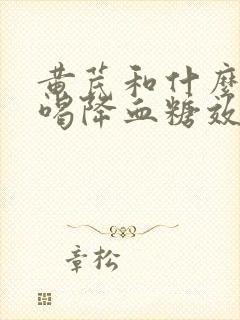 黄芪和什麼
喝降血糖效
章松